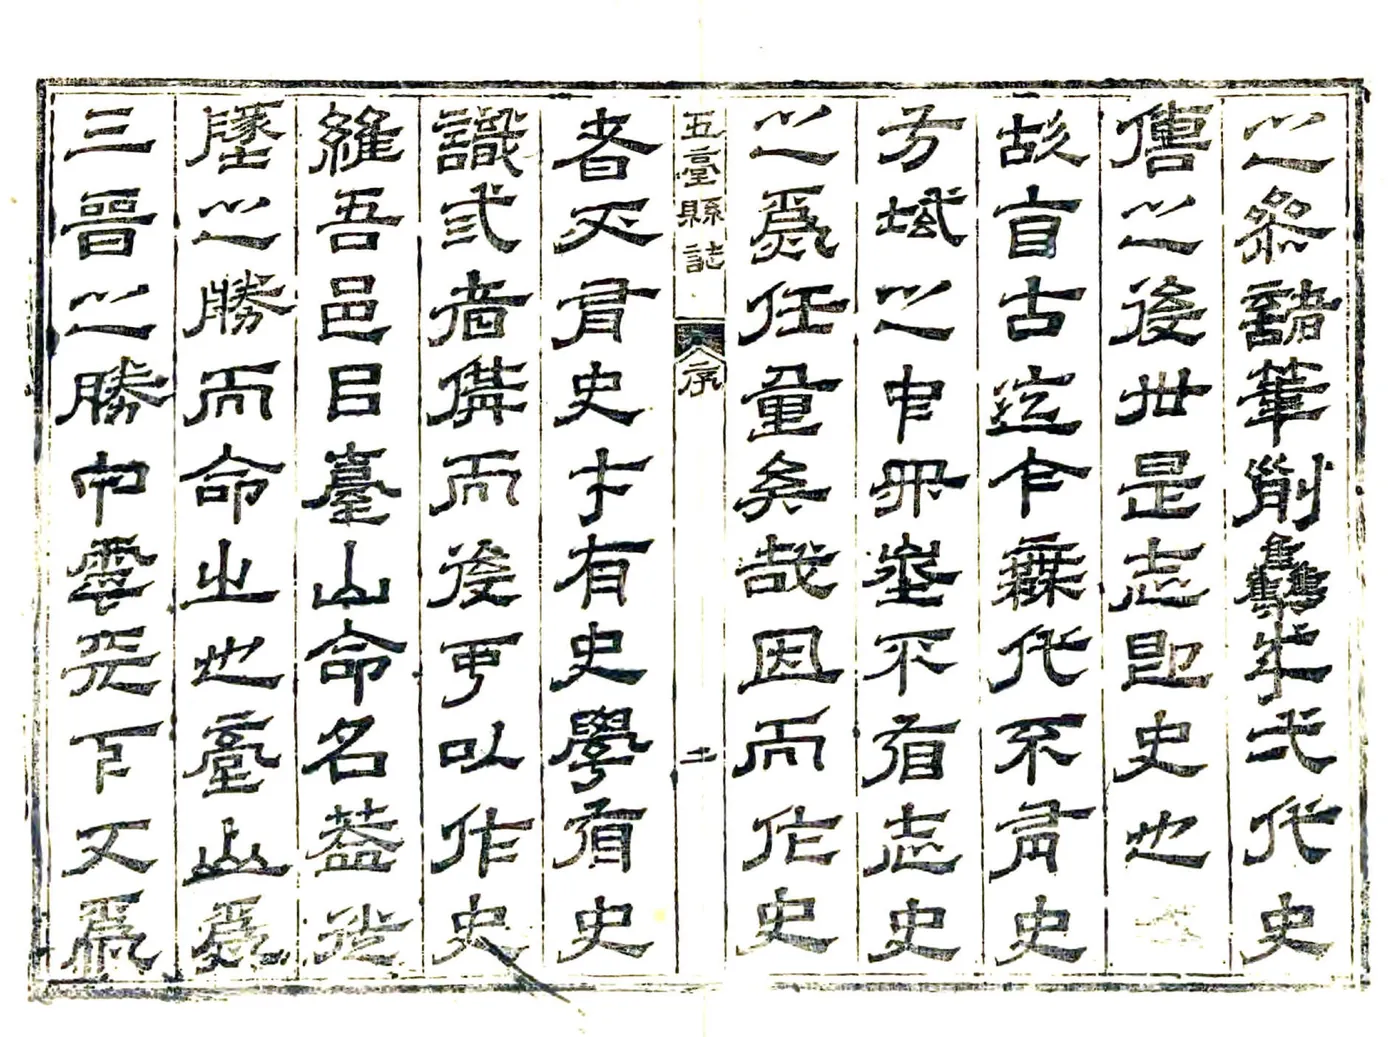 之叅諸筆削雧代史
傳之後世是志即史也
故自古迄今無代不有史
方域之中埊不有志史
之為任重矣哉因而作史
五臺縣誌
序
土
者必有史才有史學有史
識弎者備而後可以作史
維吾邑㠯臺山命名蓋從
墬之勝而命之也臺山為
三晉之勝中靈下又為